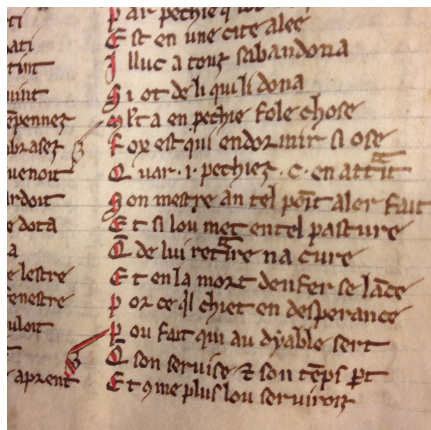 ati
tint
uint
pennez
brasez
uenoit
ardoit
e dota
a
e lestre
enestre
uloit
t
aprent
Par pechie q̉ lot
Est en une cite alee
Illuc a touz sabandona
Si ot de li qui li dona
Ml't a en pechie fole chose
Fox est qui endormir si ose
Quar .i. pechiez .c. en attrait
Son mestre an tel point aler fait
Et si lou met en tel pasture
Q̄ de lui retraire na cure
Et en la mort denfer se lāce
Por ce q̉l chiet en desperance
Pou fait qui au dyable sert
Q̄ son servise ⁊ son tēps ꝑt
Et ꝯme plus lou serviroiz